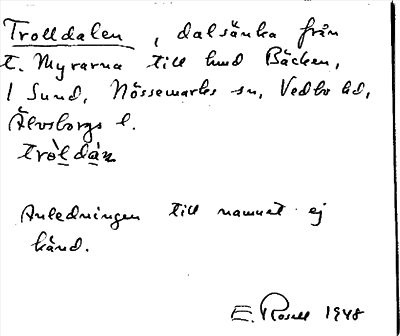 Trolldalen, dalsänka från
t. Myrarna till lund Bäcken,
1 Sund, Nössemarks sn, Vedbo hd,
Älvsborgs l.
tròldán
Anledningen till namnet ej
känd.
E. Rosell 1948